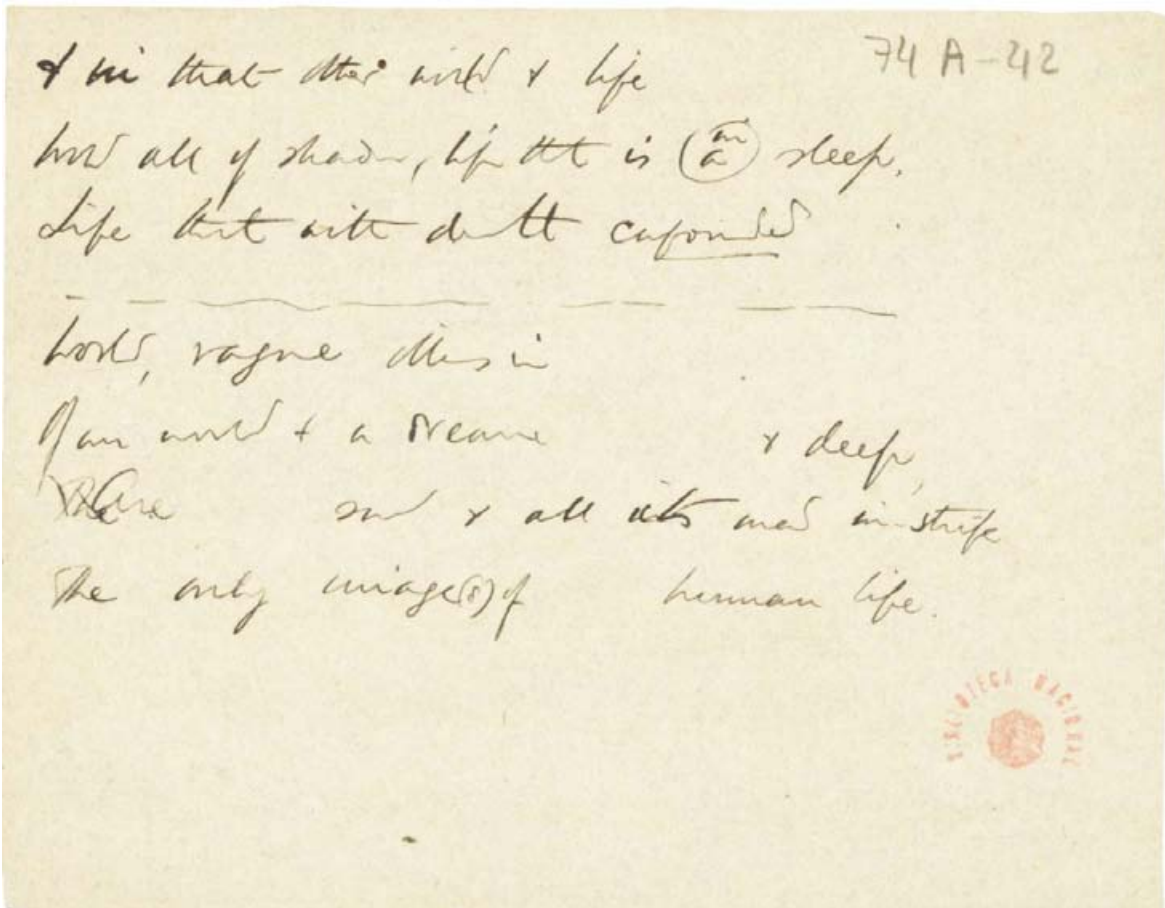 74 A-42
& in that other world & life
World all of shadow, life that is (a in) sleep,
Life that with death confounded
World, vague
Of our world & a dream & deep,
and & all its mad in-strife
The only image(s) of human life.
BIBLIOTECA NACIONAL